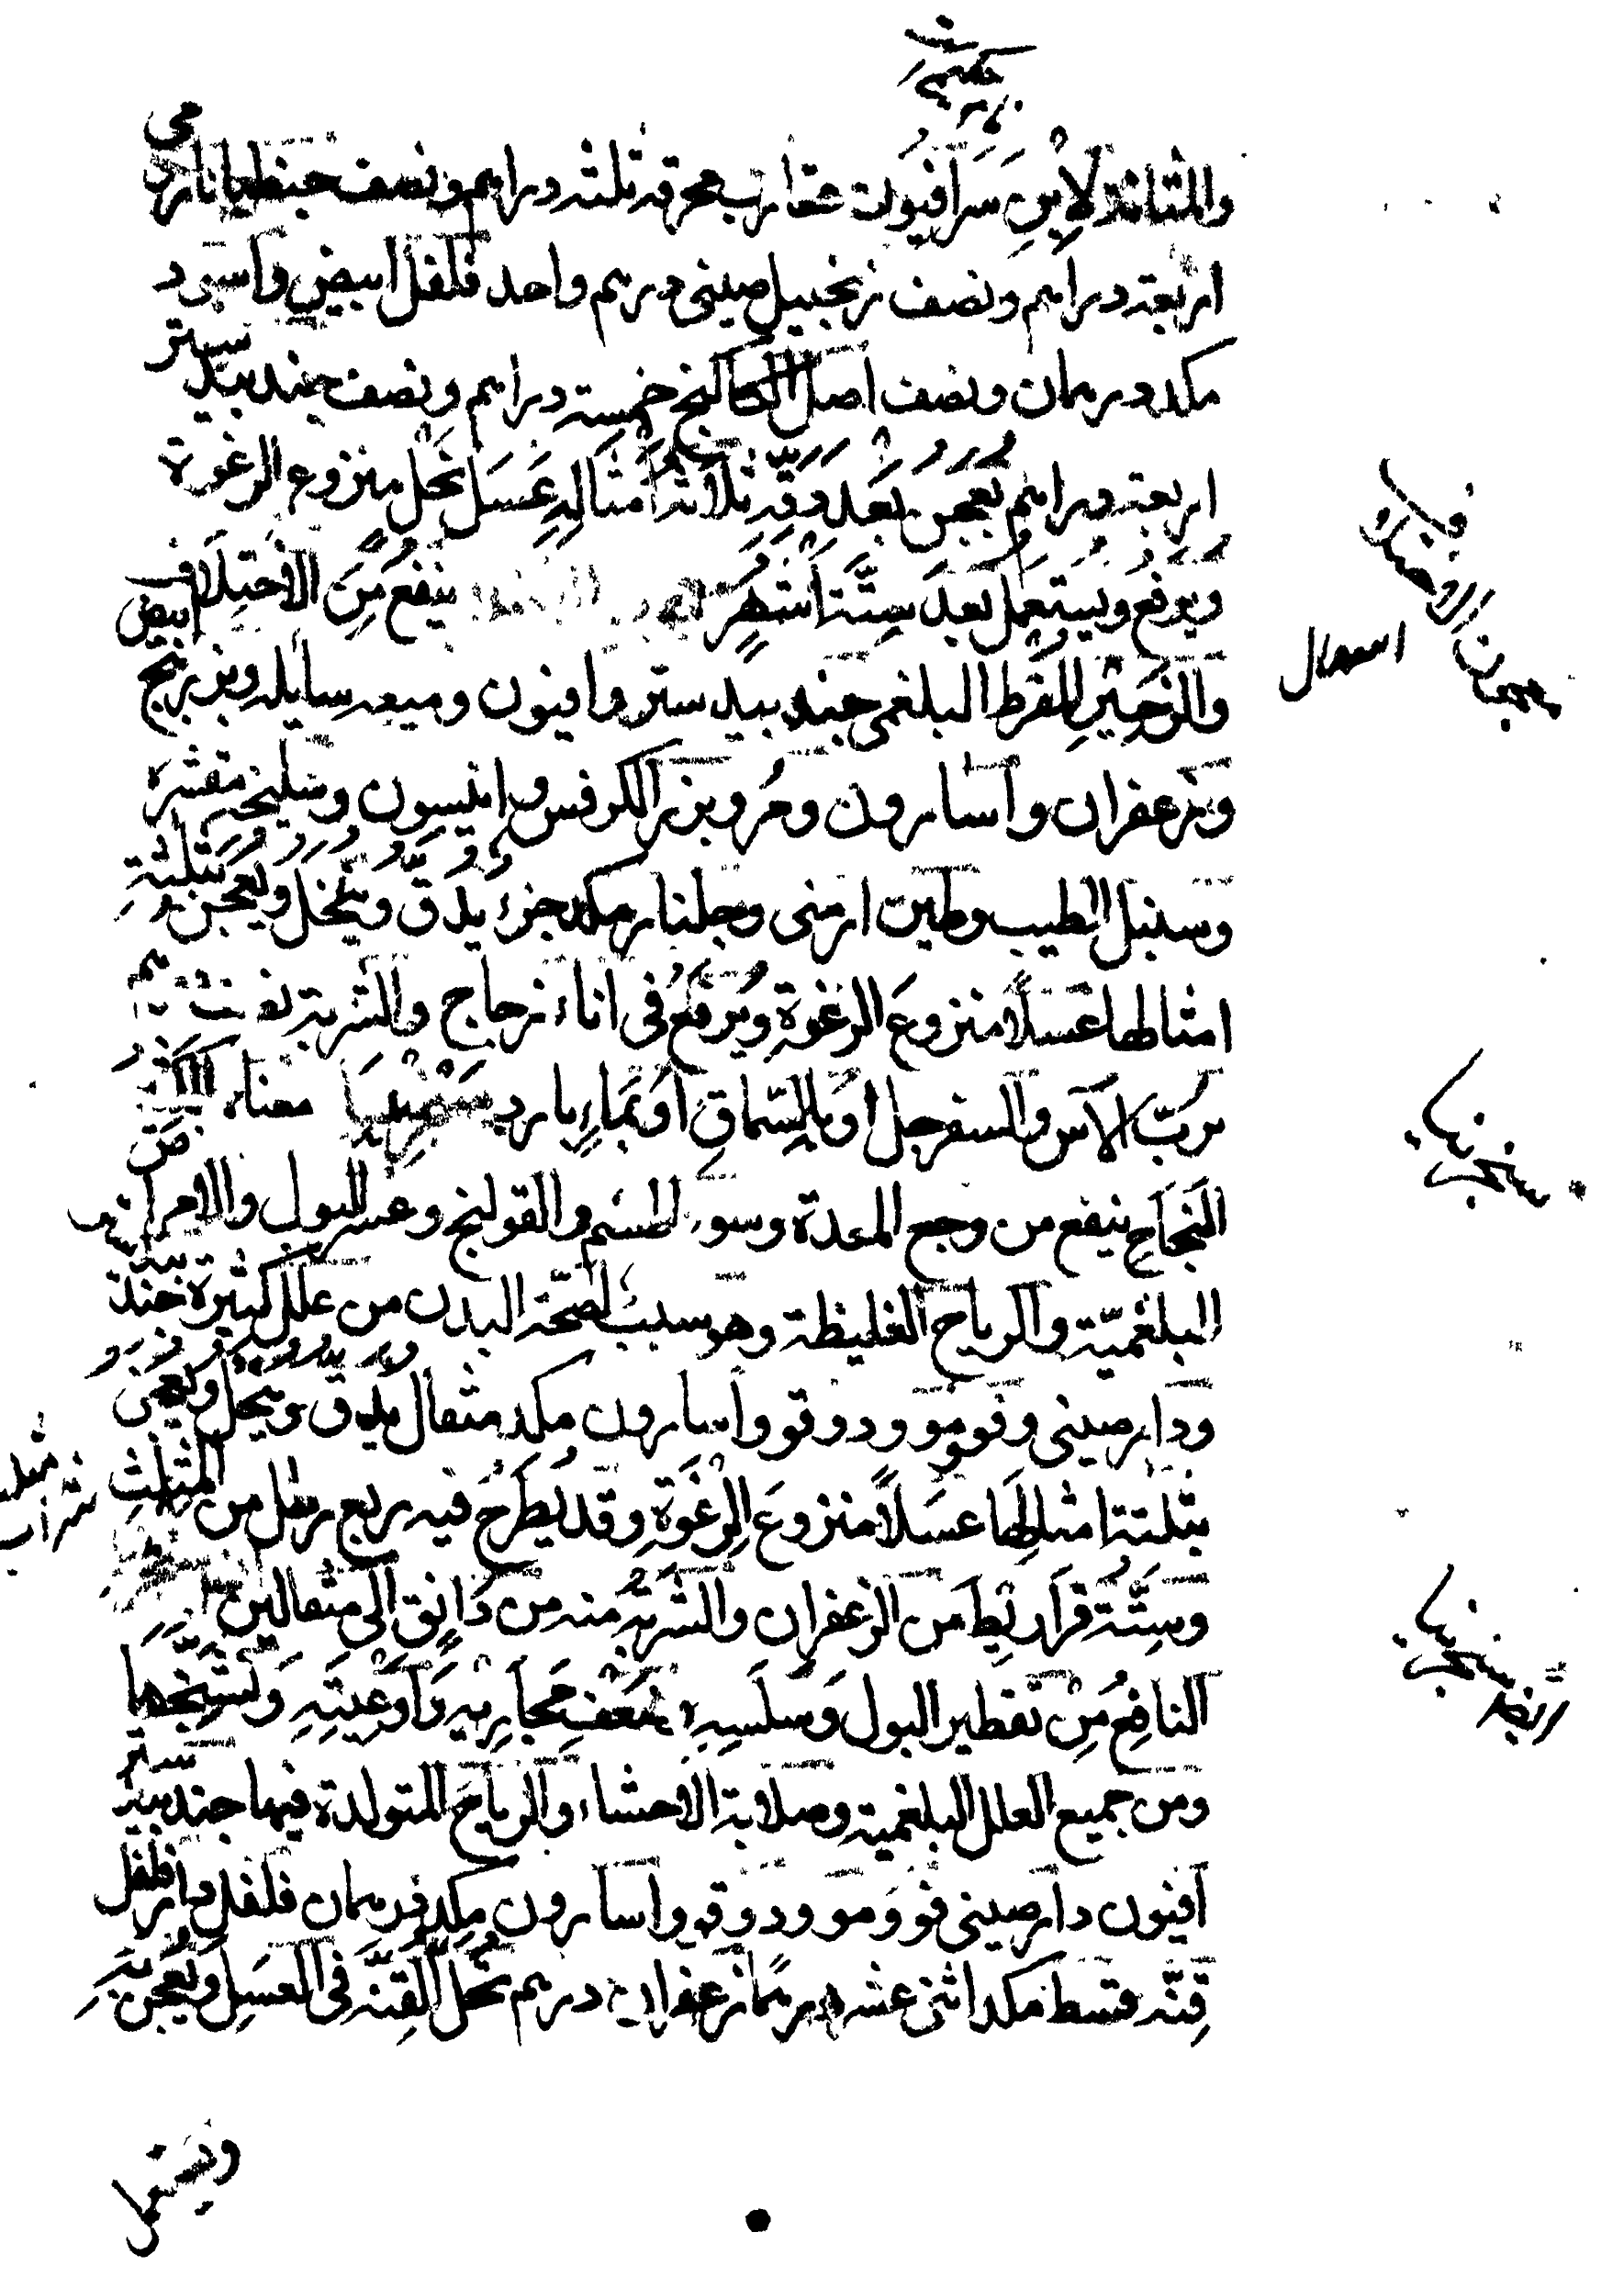 والمثانة لابن سرافيون عقارب محرقه ثلثه دراهم ونصف جنطيانا رومى
اربعة دراهم ونصف زنجبيل صينى درهم واحد فلفل ابيض واسود
مكد درهمان ونصف اصل الكاكنج خمسة دراهم ونصف جندبيدستر
اربعة دراهم يُعجن بَعدَ دقِّه ثلاثة امثاله عَسَل نحل منزوع الرغوة
ويرفعُ ويستعمل بعدَ ستَّة اشهُر ينفع مِنَ الاختِلاف
والزحِيْرِ المفرط البلغمى جندبيدستر وافيون وميعه سايله وبزر بنج ابيض
وزعفران واسارون ومُر وبزر الكرفس وانيسون وسليخه مقشره
وسنبل الطيب وطين ارمنى وجلنار مكد جزء يُدقّ ويُنخل ويُعجن بثلثةِ
امثالها عَسَلاً منزوعَ الرغوةِ ويُرفعُ فى اناء زجاج والشربة
برُبّ الآس والسفرجل اوبالسّماقِ اوبماءٍ بارد معناه الكثير
النجَاحِ ينفع من وجع المعدة وسوء الهضم والقولنج وعسر البول والامراض
البلغميّة والرياح الغليظة وهو سببٌ لصحّة البدن من علل كثيرة جندبيد
ودارصينى وفو ومو ودوقو واسارون مكد مثقال يُدقّ ويُنخل ويُعجن
بثلثة امثالِهَا عسَلاً منزوعَ الرغوَةِ وقد يُطرَحُ فيه ربع رطل من المثلثِ
وستَّةُ قرَاريْطَ مَن الزعفران والشربةُ منه من دانِق الى مثقالين
النافعُ مِنْ تقطير البول وَسَلَسِهِ مَجاريه وَاَوْعِيَتِهِ
ومن جميع العلل البلغمية وصلابة الاحشاء والرياح المتولدة فيها جندبيدستر
افيون دارصينى فو ومو ودوقو واسارون مكد درهمان فلفل دارفلفل
قِنّه قسط مكد اثنى عشر درهمًا زعفران درهم تُحَلّ القِنّه فى العسَلِ ويُعجن بهِ
معجون
اسهال
سنجرنيا
ايضا سنجرنيا
شراب
ويستعمل